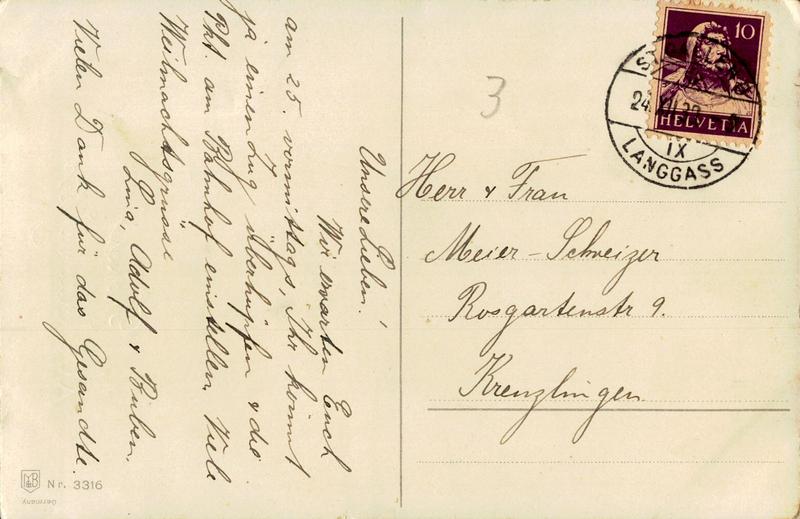 Unsere Lieben!
Wir erwarten Euch
am 25. vormittags, Ihr kommt
ja einen Zug überhüpfen & die
Pkt. am Bahnhof einstellen. Viele
Weihnachtsgrüsse
Lina, Adolf & Buben.
Vielen Dank für das Gesandte.
Herr & Frau
Meier-Schweizer
Rosgartenstr 9.
Kreuzlingen
3
10
HELVETIA
ST. GALLEN
24. XII.
IX
LANGGASS
Nr. 3316
Germany